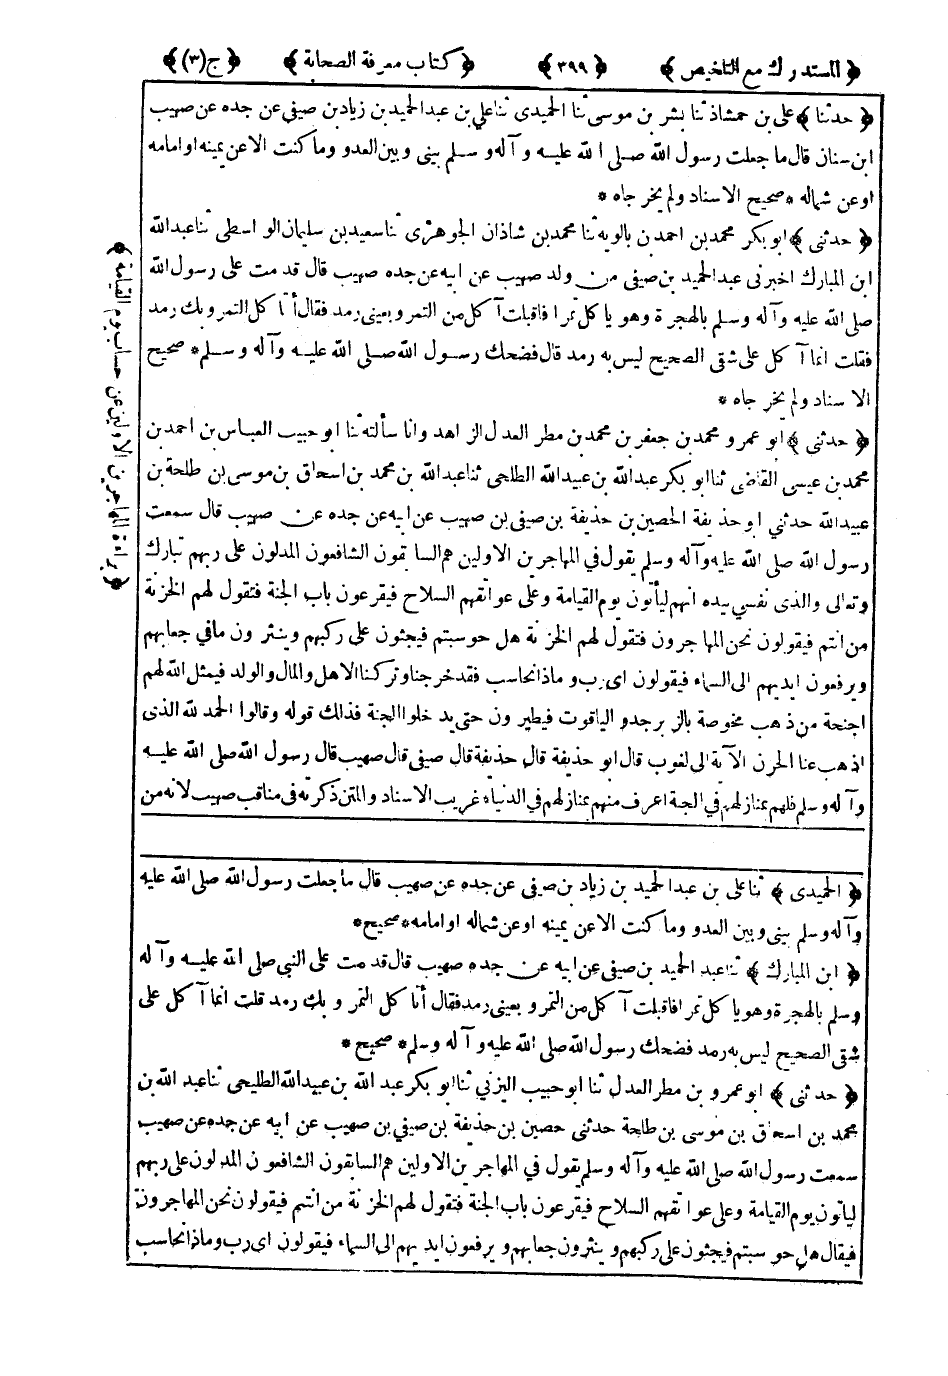 ﴿ المستدرك مع التلخيص ﴾ ﴿ ٣٩٩ ﴾ ﴿ كتاب معرفة الصحابة ﴾ ﴿ ج (٣) ﴾
﴿ حدثنا ﴾ على بن حمشاذ ثنا بشر بن موسى ثنا الحميدى ثنا على بن عبد الحميد بن زياد بن صيفى عن جده عن صهيب
ابن سنان قال ما جعلت رسول الله صلى الله عليه وآله وسلم بينى وبين العدو وما كنت الا عن يمينه او امامه
او عن شماله * صحيح الاسناد ولم يخرجاه *
﴿ حدثنى ﴾ ابو بكر محمد بن احمد بن بالويه ثنا محمد بن شاذان الجوهرى ثنا سعيد بن سليمان الواسطى ثنا عبد الله
ابن المبارك اخبرنى عبد الحميد بن صيفى من ولد صهيب عن ابيه عن جده صهيب قال قدمت على رسول الله
صلى الله عليه وآله وسلم بالهجرة وهو ياكل تمرا فاقبلت آكل من التمر وبعينى رمد فقال أتاكل التمر وبك رمد
فقلت انما آكل على شقى الصحيح ليس به رمد قال فضحك رسول الله صلى الله عليه وآله وسلم * صحيح
الاسناد ولم يخرجاه *
﴿ حدثنى ﴾ ابو عمرو محمد بن جعفر بن محمد بن مطر العدل الزاهد وانا سألته ثنا ابو حبيب العباس بن احمد بن
محمد بن عيسى القاضى ثنا ابو بكر عبد الله بن عبيد الله الطلحى ثنا عبد الله بن محمد بن اسحاق بن موسى بن طلحة بن
عبيد الله حدثنى ابو حذيفة الحصين بن حذيفة بن صيفى بن صهيب عن ابيه عن جده عن صهيب قال سمعت
رسول الله صلى الله عليه وآله وسلم يقول في المهاجرين الاولين هم السابقون الشافعون المدلون على ربهم تبارك
وتعالى والذى نفسي بيده انهم ليأتون يوم القيامة وعلى عواتقهم السلاح فيقرعون باب الجنة فتقول لهم الخزنة
من انتم فيقولون نحن المهاجرون فتقول لهم الخزنة هل حوسبتم فيجثون على ركبهم وينثرون ما في جعابهم
ويرفعون ايديهم الى السماء فيقولون اى رب وماذا نحاسب فقد خرجنا وتركنا الاهل والمال والولد فيمثل الله لهم
اجنحة من ذهب مخوصة بالزبرجد والياقوت فيطيرون حتى يدخلوا الجنة فذالك قوله وقالوا الحمد لله الذى
اذهب عنا الحزن الآية الى لغوب قال ابو حذيفة قال حذيفة قال صيفى قال صهيب قال رسول الله صلى الله عليه
وآله وسلم فلهم بمنازلهم في الجنة اعرف منهم بمنازلهم في الدنياء غريب الاسناد والمتن ذكرته في مناقب صهيب لانه من
﴿ براءة المهاجرين الاولين عن حساب يوم القيامة ﴾
﴿ الحميدى ﴾ ثنا على بن عبد الحميد بن زياد بن صيفى عن جده عن صهيب قال ما جعلت رسول الله صلى الله عليه
وآله وسلم بينى وبين العدو وما كنت الا عن يمينه او عن شماله او امامه * صحيح *
﴿ ابن المبارك ﴾ ثنا عبد الحميد بن صيفى عن ابيه عن جده صهيب قال قدمت على النبي صلى الله عليه وآله
وسلم بالهجرة وهو ياكل تمرا فاقبلت آكل من التمر وبعينى رمد فقال أتاكل التمر وبك رمد قلت انما آكل على
شقى الصحيح ليس به رمد فضحك رسول الله صلى الله عليه وآله وسلم * صحيح *
﴿ حدثنى ﴾ ابو عمرو بن مطر العدل ثنا ابو حبيب اليزني ثنا ابو بكر عبد الله بن عبيد الله الطليحى ثنا عبد الله بن
محمد بن اسحاق بن موسى بن طلحة حدثنى حصين بن حذيفة بن صيفي بن صهيب عن ابيه عن جده عن صهيب
سمعت رسول الله صلى الله عليه وآله وسلم يقول في المهاجرين الاولين هم السابقون الشافعون المدلون على ربهم
لياتون يوم القيامة وعلى عواتقهم السلاح فيقرعون باب الجنة فتقول لهم الخزنة من انتم فيقولون نحن المهاجرون
فيقال هل حوسبتم فيجثون على ركبهم وينثرون جعابهم ويرفعون ايديهم الى السماء فيقولون اى رب وماذا نحاسب